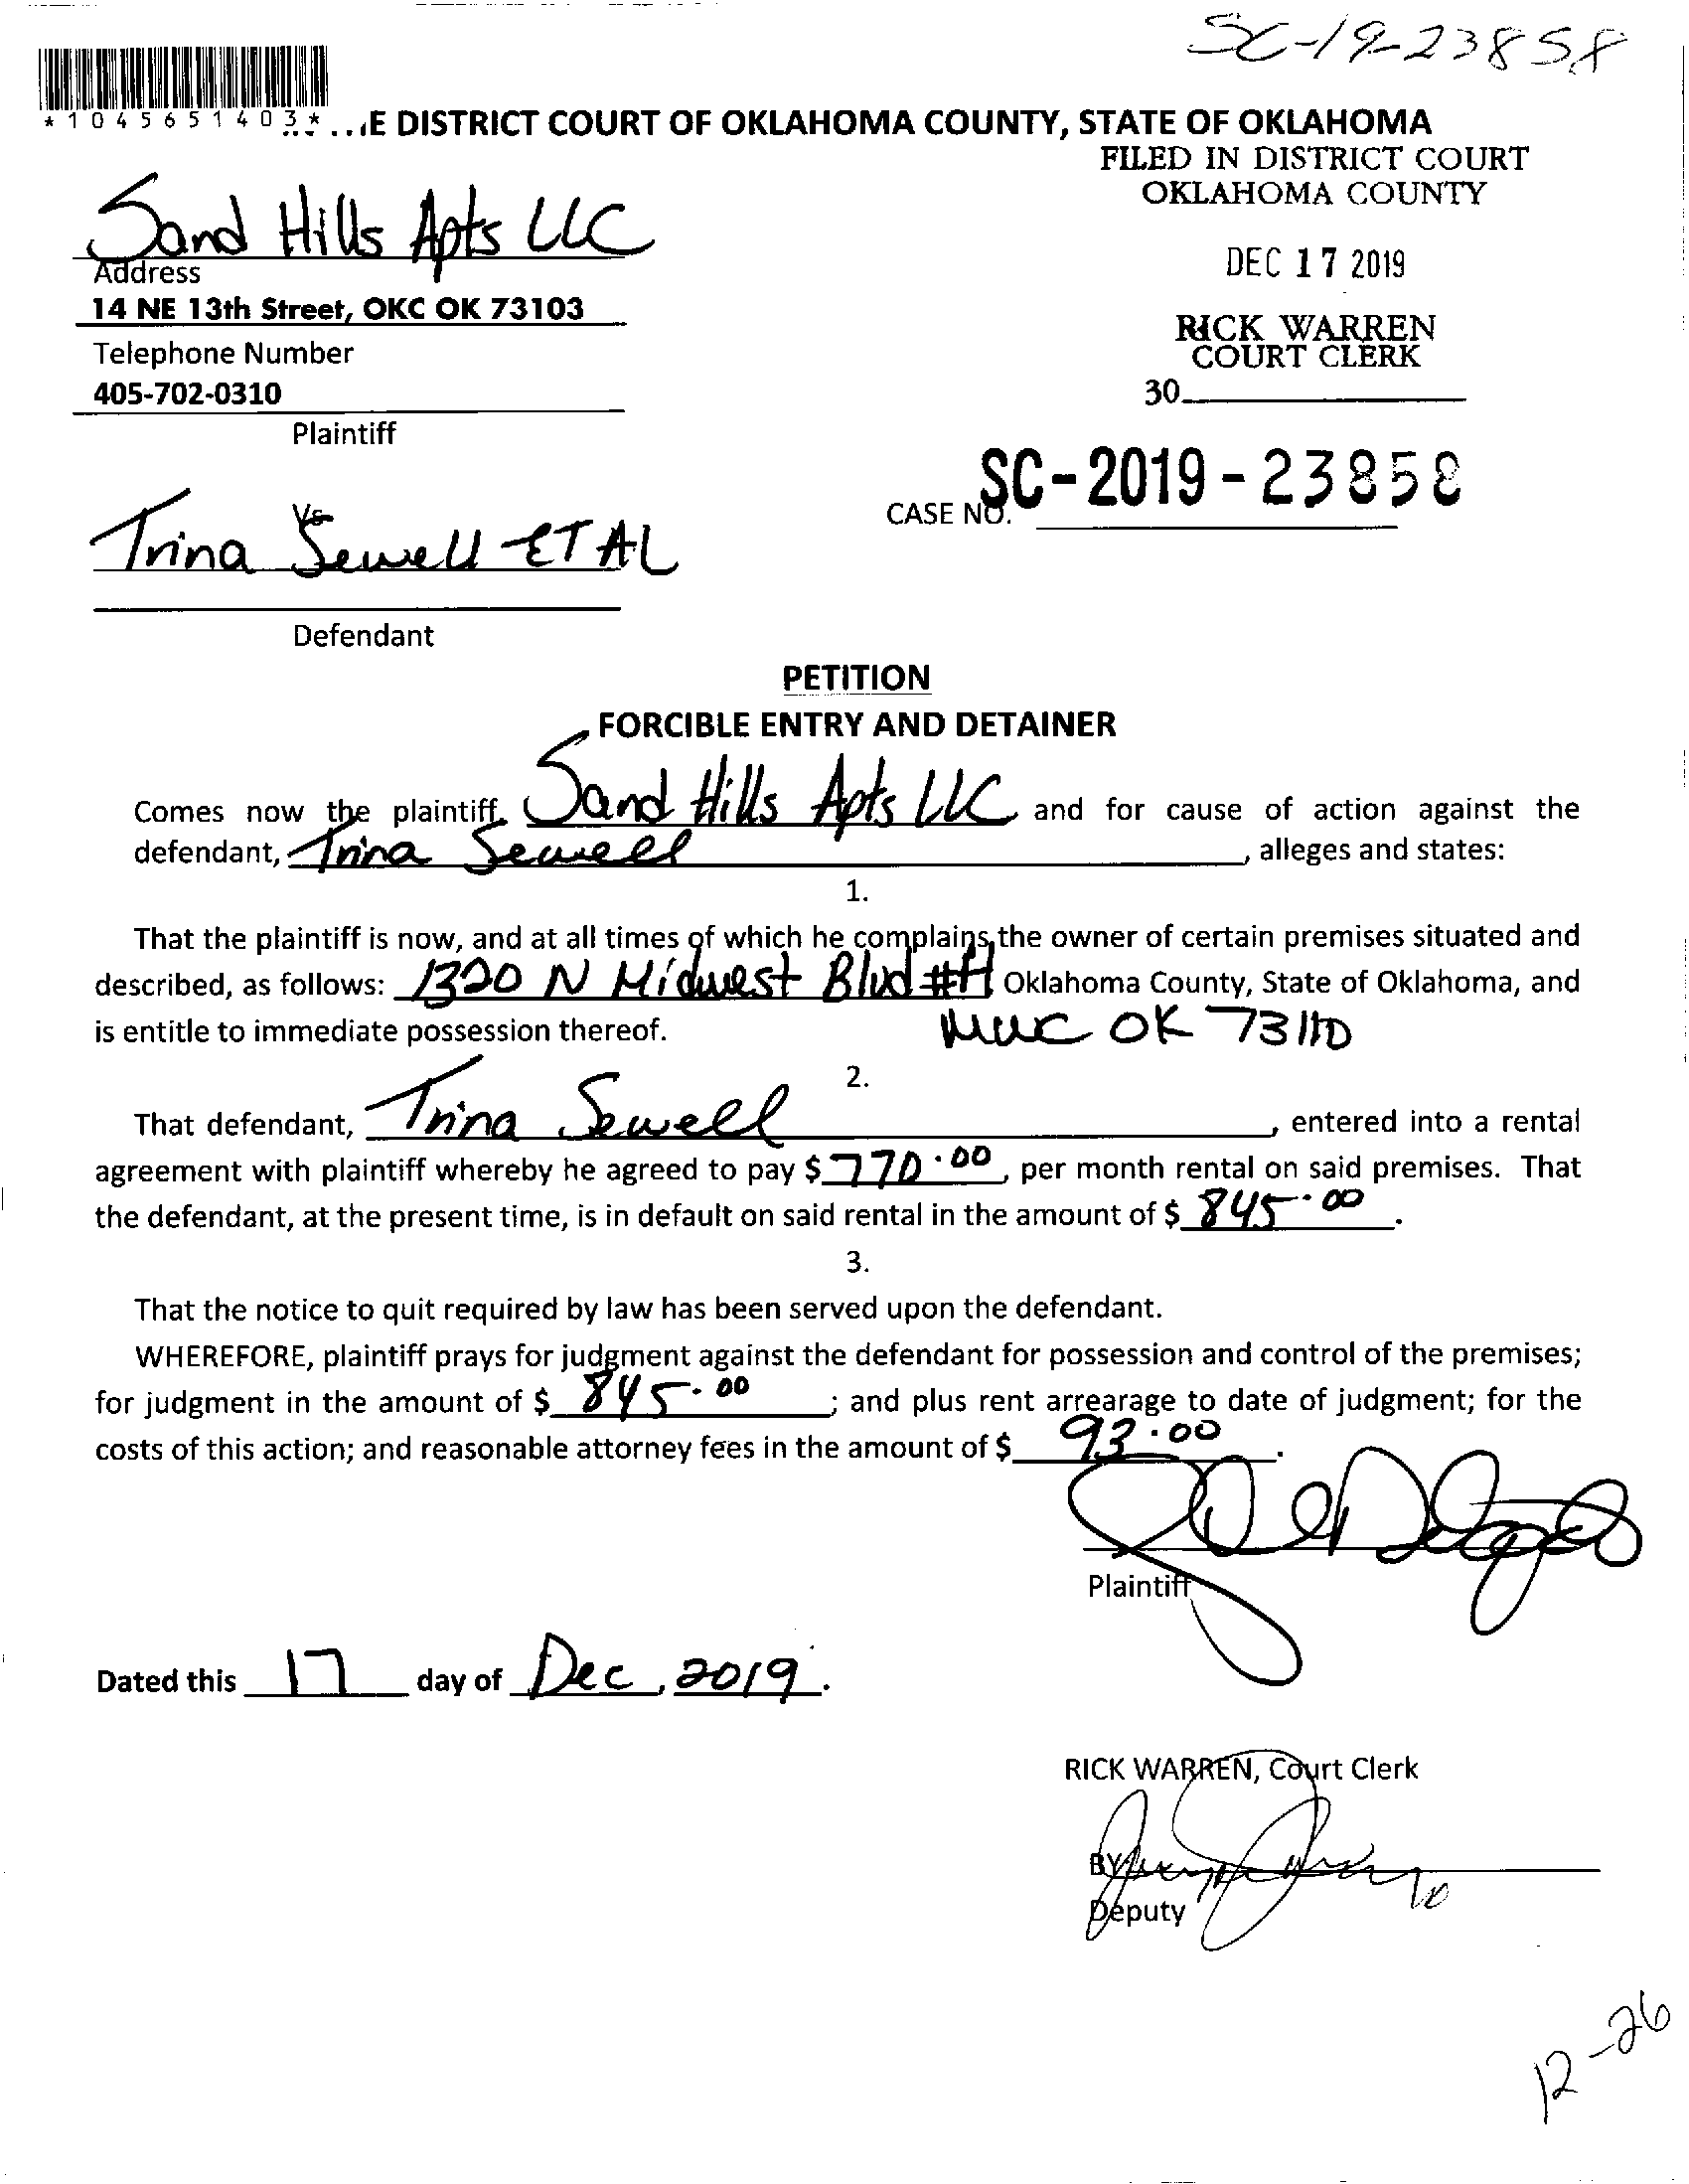 SC-19-23858
*1045651403*...E DISTRICT COURT OF OKLAHOMA COUNTY, STATE OF OKLAHOMA
FILED IN DISTRICT COURT
OKLAHOMA COUNTY
Sand Hills Apts LLC
DEC 17 2019
Address
14 NE 13th Street, OKC OK 73103
RICK WARREN
COURT CLERK
Telephone Number
405-702-0310
30
Plaintiff
CASE NO. SC-2019-23858
Vs
Trina Sewell ET AL
Defendant
PETITION
FORCIBLE ENTRY AND DETAINER
Comes now the plaintiff, Sand Hills Apts LLC and for cause of action against the
defendant, Trina Sewell, alleges and states:
1.
That the plaintiff is now, and at all times of which he complains, the owner of certain premises situated and
described, as follows: 1320 N Midwest Blvd #H Oklahoma County, State of Oklahoma, and
is entitle to immediate possession thereof. MWC OK 73110
2.
That defendant, Trina Sewell, entered into a rental
agreement with plaintiff whereby he agreed to pay $ 770.00, per month rental on said premises. That
the defendant, at the present time, is in default on said rental in the amount of $ 845.00.
3.
That the notice to quit required by law has been served upon the defendant.
WHEREFORE, plaintiff prays for judgment against the defendant for possession and control of the premises;
for judgment in the amount of $ 845.00; and plus rent arrearage to date of judgment; for the
costs of this action; and reasonable attorney fees in the amount of $ 93.00.
Plaintiff
Dated this 17 day of Dec, 2019.
RICK WARREN, Court Clerk
BY
Deputy
12-26